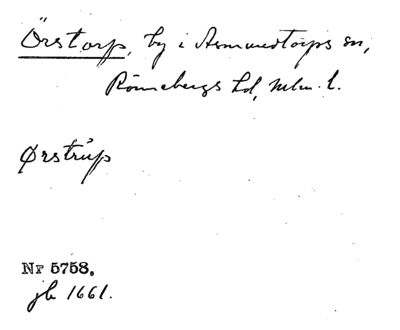 Örstorp, by i Asmundtorps sn,
Rönnebergs hd, Mlm. l.
Ørstrup
Nr 5758.
jb 1661.